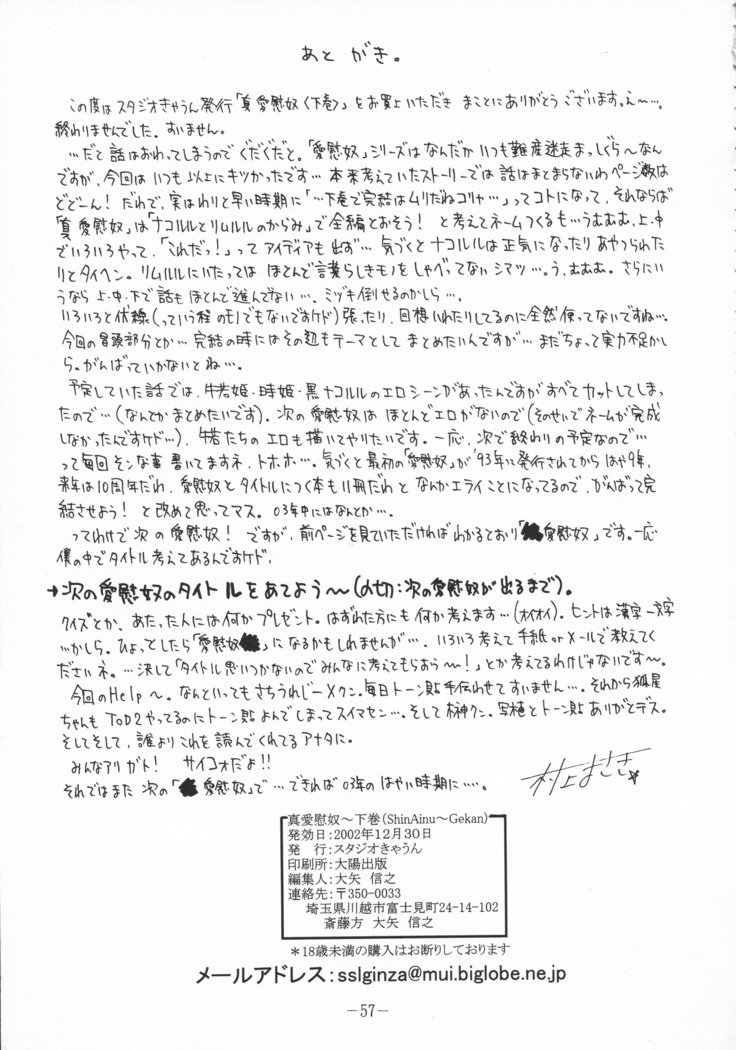 あと がき。
この度はスタジオきゃうん発行「真愛慰奴〈下巻〉」をお買上いただき まことにありがとう ございます。え〜…。
終わりませんでした。すいません。
…だと 話はおわってしまうので ぐだぐだと。「愛慰奴」シリーズはなんだか いつも難産迷走まっしぐら〜なん
ですが、今回は いつも以上にキツかったです… 本来考えていたストーリーでは 話はまとまらないわ ページ数は
どどーん! だわで、実はわりと早い時期に「…下巻で完結はムリだねコリャ…」ってコトになって、それならば
「真愛慰奴」は「ナコルルとリムルルのからみ」で全編とおそう! と考えてネームつくるも…うむむむ、上・中
でいろいろやって、「これだっ!」って アイディアも出ず… 気づくと ナコルルは正気になったり あやつられた
りとタイヘン。リムルルにいたっては ほとんど言葉らしきモノを しゃべってない シマツ…。う、むむむ。さらにい
うなら 上・中・下で話も ほとんど進んでない…。ミヅキ倒せるのかしら…。
いろいろと伏線(っていう程のモノでもないですケド)張ったり、回想いれたりしてるのに全然使ってないですね…。
今回の冒頭部分とか… 完結の時にはその辺もテーマとして まとめたいんですが… まだちょって実力不足かし
ら。がんばっていかないとね…。
予定していた話では、牛若姫・時姫・黒ナコルルのエロシーンがあったんですがすべてカットしてしまっ
たので…(なんとかまとめたいです)。次の愛慰奴は ほとんどエロがないので(そのせいでネームが完成
しなかったんですケド…)、牛若たちの エロも描いてやりたいです。一応、次で終わりの予定なので…
って毎回そンな事 書いてますネ、トホホ…。気づくと最初の「愛慰奴」が'93年に発行されてから はや9年、
来年は10周年だわ、愛慰奴とタイトルにつく本も11冊だわと なんかエライことになってるので、がんばって完
結させよう! と改めて思ってマス。03年中にはなんとか…。
ってわけで 次の愛慰奴! ですが、前ページを見ていただければ わかるとおり「 愛慰奴」です。一応
僕の中でタイトル考えてあるんですケド、
→次の愛慰奴のタイトルをあてよう〜(〆切:次の愛慰奴が出るまで)。
クイズとか、あたった人には何かプレゼント。はずれた方にも何か考えます…(オイオイ)。ヒントは漢字一文字
…かしら。ひょっとしたら「愛慰奴 」になるかもしれませんが…、いろいろ考えて 手紙orメールで教えてく
ださいネ。…決して「タイトル思いつかないのでみんなに考えてもらおう〜!」とか考えてるわけじゃないです〜。
今回のHelp〜。なんといっても さちうれじーXクン。毎日トーン貼手伝わせてすいません…。それから狐星
ちゃんも ToD2やってるのにトーン貼よんでしまってスイマセン…。そして 榊クン。写植とトーン貼ありがとデス。
そしてそして、誰よりこれを読んでくれてるアナタに。
みんなアリガト! サイコォだよ!!
それではまた 次の「 愛慰奴」で…できれば 03年のはやい時期に……。
村上まさき
真愛慰奴〜下巻(ShinAinu〜Gekan)
発効日:2002年12月30日
発 行:スタジオきゃうん
印刷所:大陽出版
編集人:大矢 信之
連絡先:〒350-0033
埼玉県川越市富士見町24-14-102
斎藤方 大矢 信之
*18歳未満の購入はお断りしております
メールアドレス:sslginza@mui.biglobe.ne.jp
−57−